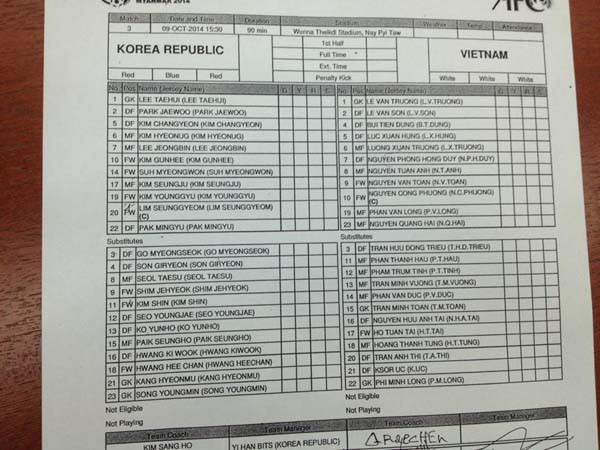 MYANMAR 2014
AFC
Match Date and Time Duration Stadium Weather Temp. Attendance
3 09-OCT-2014 15:30 90 min Wunna Theikdi Stadium, Nay Pyi Taw
KOREA REPUBLIC
1st Half
Full Time
Ext. Time
Penalty Kick
VIETNAM
Red Blue Red
White White White
No. Pos Name (Jersey Name) G Y R S
1 GK LEE TAEHUI (LEE TAEHUI)
2 DF PARK JAEWOO (PARK JAEWOO)
5 DF KIM CHANGYEON (KIM CHANGYEON)
6 MF KIM HYEONUG (KIM HYEONUG)
7 MF LEE JEONGBIN (LEE JEONGBIN)
10 FW KIM GUNHEE (KIM GUNHEE)
14 FW SUH MYEONGWON (SUH MYEONGWON)
17 MF KIM SEUNGJU (KIM SEUNGJU)
19 FW KIM YOUNGGYU (KIM YOUNGGYU)
20 FW LIM SEUNGGYEOM (LIM SEUNGGYEOM)
(C)
22 DF PAK MINGYU (PAK MINGYU)
Substitutes
3 DF GO MYEONGSEOK (GO MYEONGSEOK)
4 DF SON GIRYEON (SON GIRYEON)
8 MF SEOL TAESU (SEOL TAESU)
9 FW SHIM JEHYEOK (SHIM JEHYEOK)
11 FW KIM SHIN (KIM SHIN)
12 DF SEO YOUNGJAE (SEO YOUNGJAE)
13 DF KO YUNHO (KO YUNHO)
15 MF PAIK SEUNGHO (PAIK SEUNGHO)
16 DF HWANG KI WOOK (HWANG KIWOOK)
18 FW HWANG HEE CHAN (HWANG HEECHAN)
21 GK KANG HYEONMU (KANG HYEONMU)
23 GK SONG YOUNGMIN (SONG YOUNGMIN)
Not Eligible
Not Playing
Team Coach Team Manager
KIM SANG HO YI HAN BITS (KOREA REPUBLIC)
No. Pos Name (Jersey Name) G Y R S
1 GK LE VAN TRUONG (L.V.TRUONG)
2 DF LE VAN SON (L.V.SON)
4 DF BUI TIEN DUNG (B.T.DUNG)
5 DF LUC XUAN HUNG (L.X.HUNG)
6 MF LUONG XUAN TRUONG (L.X.TRUONG)
7 DF NGUYEN PHONG HONG DUY (N.P.H.DUY)
8 MF NGUYEN TUAN ANH (N.T.ANH)
9 FW NGUYEN VAN TOAN (N.V.TOAN)
10 FW NGUYEN CONG PHUONG (N.C.PHUONG)
(C)
19 MF PHAN VAN LONG (P.V.LONG)
23 MF NGUYEN QUANG HAI (N.Q.HAI)
Substitutes
3 DF TRAN HUU DONG TRIEU (T.H.D.TRIEU)
11 MF PHAN THANH HAU (P.T.HAU)
12 MF PHAM TRUM TINH (P.T.TINH)
13 MF TRAN MINH VUONG (T.M.VUONG)
14 MF PHAN VAN DUC (P.V.DUC)
15 GK TRAN MINH TOAN (T.M.TOAN)
16 DF NGUYEN HUU ANH TAI (N.H.A.TAI)
17 FW HO TUAN TAI (H.T.TAI)
18 MF HOANG THANH TUNG (H.T.TUNG)
20 DF TRAN ANH THI (T.A.THI)
21 DF KSOR UC (K.UC)
22 GK PHI MINH LONG (P.M.LONG)
Not Eligible
Not Playing
Team Coach Team Manager